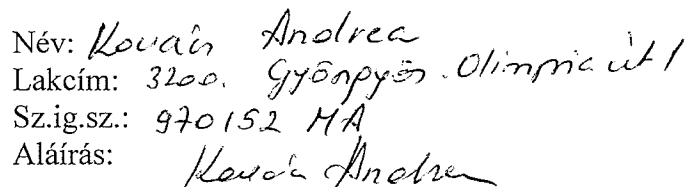 Név: Kovács Andrea
Lakcím: 3200. Gyöngyös. Olimpia út 1
Sz.ig.sz.: 970152 MA
Aláírás: Kovács Andrea